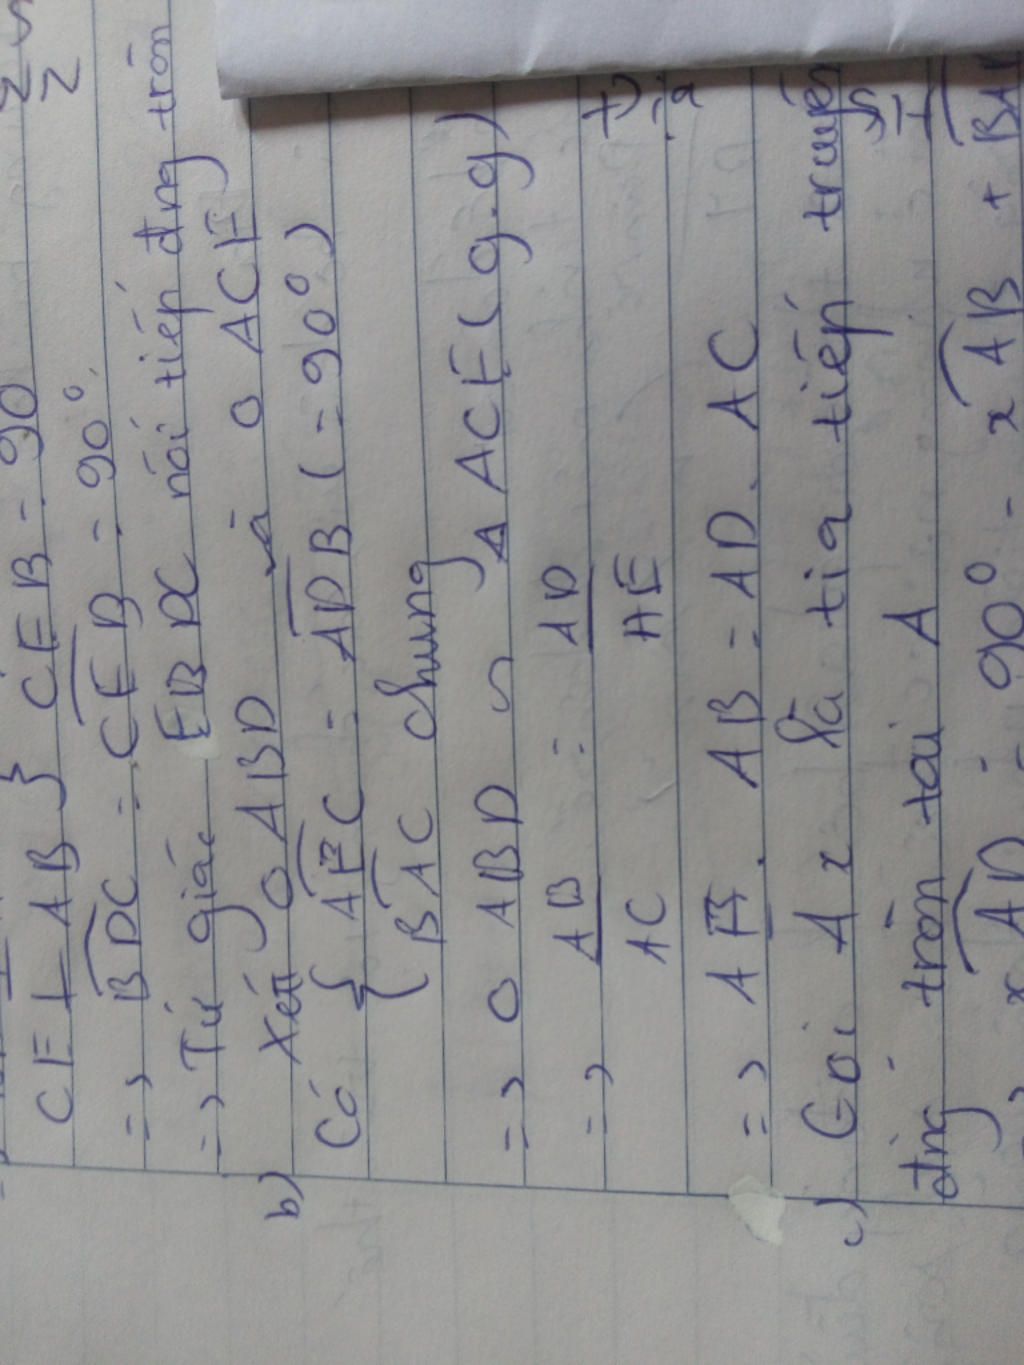 CE ⊥ AB } CEB = 90
=> BDC = CEB = 90°.
=> Tứ giác EBDC nội tiếp đng tròn
b) Xét △ ABD và △ ACE
Có { AEC = ADB (= 90°)
{ BAC chung
=> △ ABD ∽ △ ACE (g.g)
=> AB/AC = AD/AE
=> AE . AB = AD . AC
c) Gọi Ax là tia tiếp tuyến
đng tròn tại A
=> xAD = 90° - xAB +